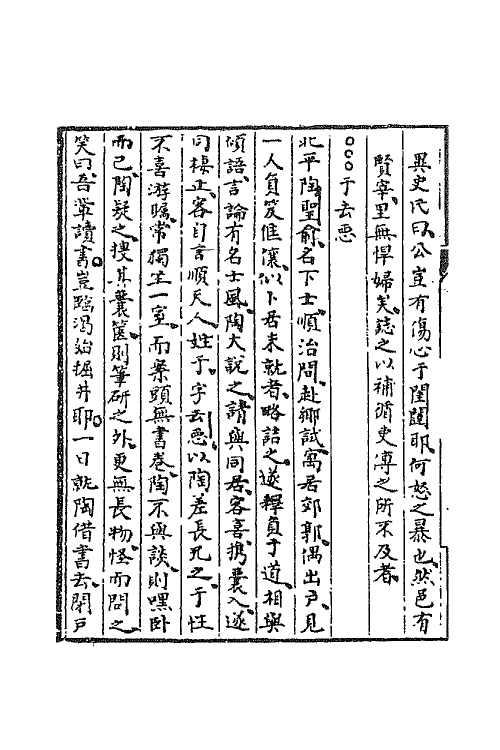 異史氏曰公豈有傷心于閨闥耶何怒之暴也然邑有
賢宰里無悍婦矣誌之以補循吏傳之所不及者
○○○于去惡
北平陶聖俞名下士順治間赴鄉試寓居郊郭偶出戶見
一人負笈㑌儴似卜居未就者略詰之遂釋負于道相與
傾語言論有名士風陶大說之請與同居客喜携囊入遂
同棲止客自言順天人姓于字去惡以陶差長兄之于性
不喜游矚常獨坐一室而案頭無書卷陶不與談則嘿臥
而已陶疑之搜其囊篋則筆研之外更無長物怪而問之
笑曰吾輩讀書豈臨渴始掘井耶一日就陶借書去閉戶